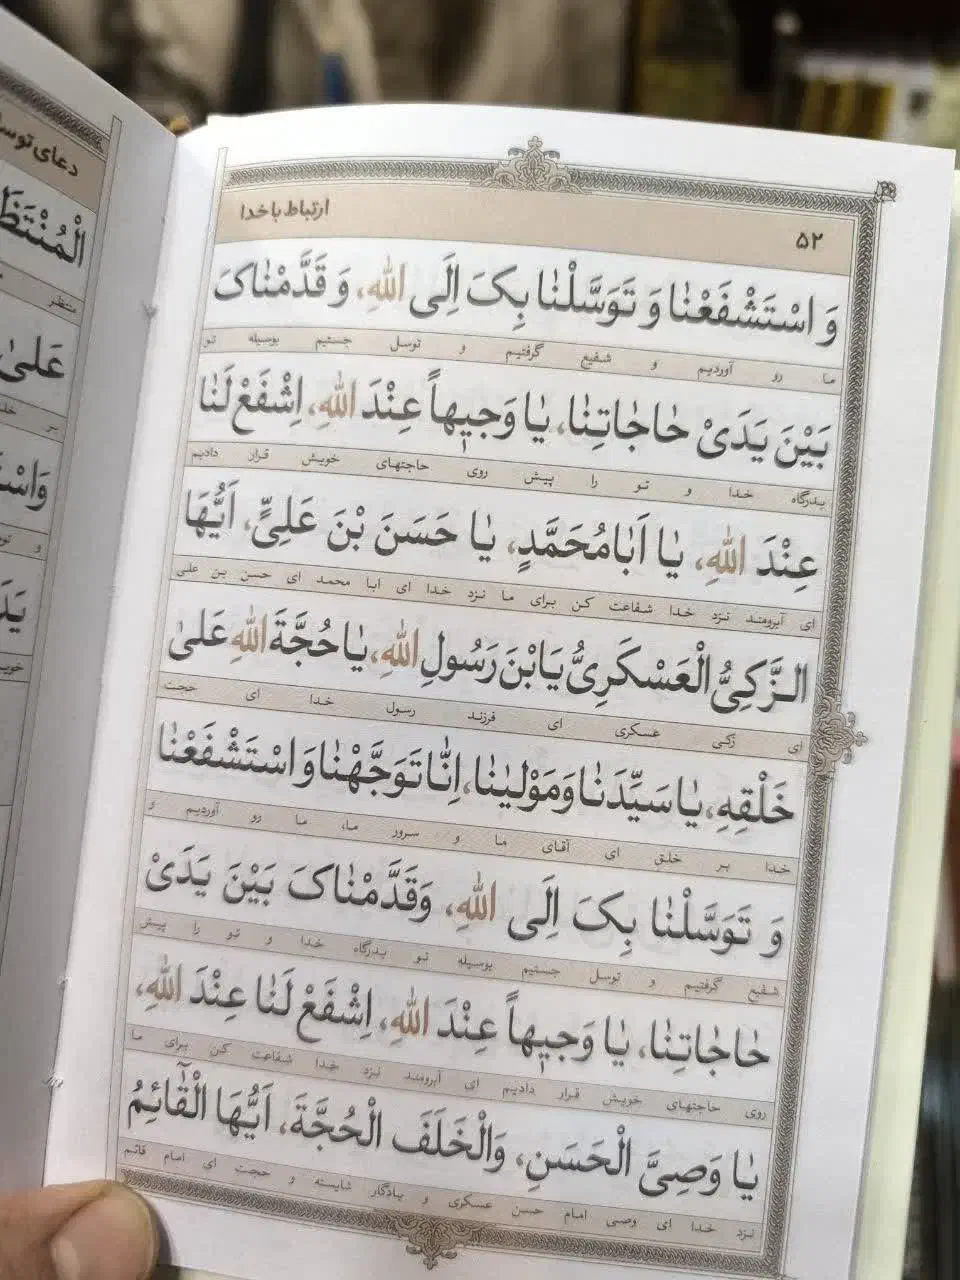 ۵۲ ارتباط با خدا
وَ اسْتَشْفَعْنٰا وَ تَوَسَّلْنٰا بِکَ اِلَی اللهِ، وَ قَدَّمْنٰاکَ
ما رو آوردیم و شفیع گرفتیم و توسل جستیم بوسیله تو
بَیْنَ یَدَیْ حٰاجٰاتِنٰا، یٰا وَجیٖهاً عِنْدَ اللهِ، اِشْفَعْ لَنٰا
بدرگاه خدا و تو را پیش روی حاجتهای خویش قرار دادیم
عِنْدَ اللهِ، یٰا اَبٰا مُحَمَّدٍ، یٰا حَسَنَ بْنَ عَلِیٍّ، اَیُّهَا
ای آبرومند نزد خدا شفاعت کن برای ما نزد خدا ای ابا محمد ای حسن بن علی
الزَّکِیُّ الْعَسْکَرِیُّ یَابْنَ رَسُولِ اللهِ، یٰا حُجَّةَ اللهِ عَلیٰ
ای زکی عسکری ای فرزند رسول خدا ای حجت
خَلْقِهِ، یٰا سَیِّدَنٰا وَ مَوْلیٰنٰا، اِنّٰا تَوَجَّهْنٰا وَ اسْتَشْفَعْنٰا
خدا بر خلق ای آقای ما و سرور ما، ما رو آوردیم و
وَ تَوَسَّلْنٰا بِکَ اِلَی اللهِ، وَقَدَّمْنٰاکَ بَیْنَ یَدَیْ
شفیع گرفتیم و توسل جستیم بوسیله تو بدرگاه خدا و تو را پیش
حٰاجٰاتِنٰا، یٰا وَجیٖهاً عِنْدَ اللهِ، اِشْفَعْ لَنٰا عِنْدَ اللهِ،
روی حاجتهای خویش قرار دادیم ای آبرومند نزد خدا شفاعت کن برای ما
یٰا وَصِیَّ الْحَسَنِ، وَالْخَلَفَ الْحُجَّةَ، اَیُّهَا الْقٰٓائِمُ
نزد خدا ای وصی امام حسن عسکری و یادگار شایسته و حجت ای امام قائم
دعای
الْمُنْتَظَ
منتظر
عَلیٰ
بر
وَاسْتَ
و
یَدَ